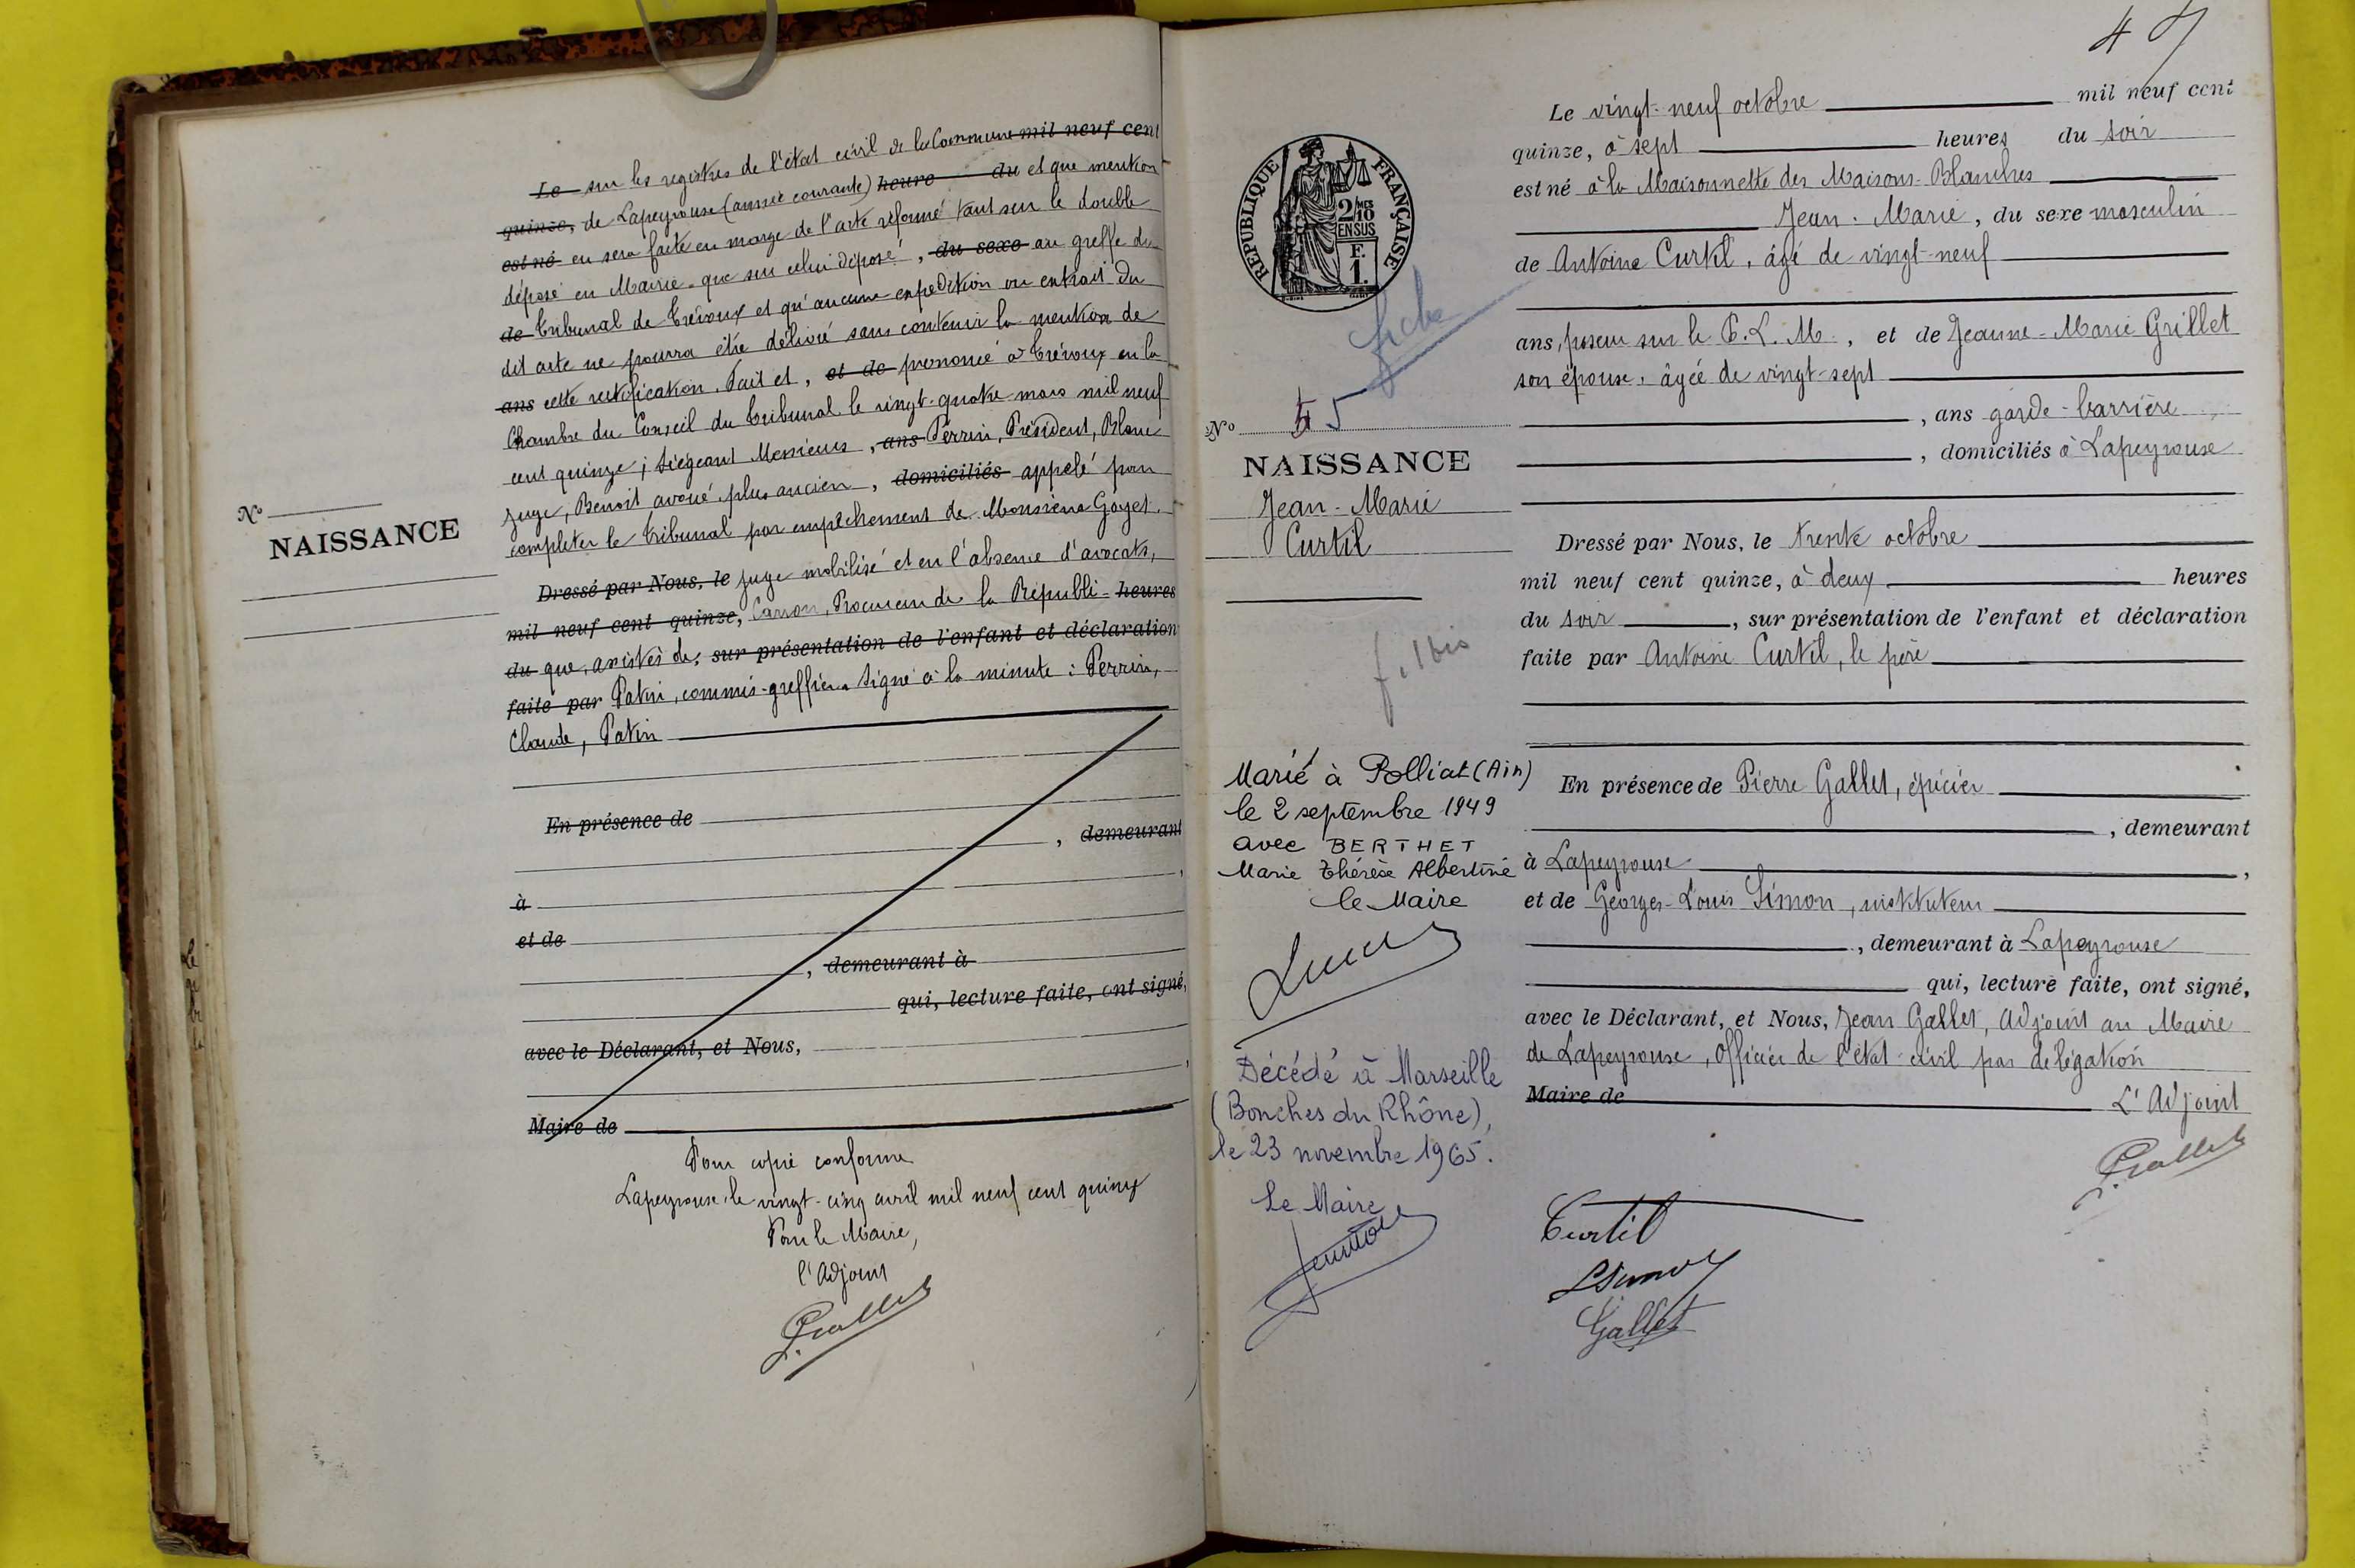 Le sur les registres de l'état civil de la Commune mil neuf cent
quinze, de Lapeyrouse (année courante) heure du et que mention
est né en sera faite en marge de l'acte réformé tant sur le double
déposé en Mairie que sur celui déposé, du sexe au greffe du
de Tribunal de Trévoux et qu'aucune expédition ou extrait du
dit acte ne pourra être délivré sans contenir la mention de
ans cette rectification. Fait et, et de prononcé à Trévoux en la
Chambre du Conseil du Tribunal le vingt-quatre mars mil neuf
cent quinze ; siégeant Messieurs, ans Perrin, Président, Blanc
juge, Benoit avoué plus ancien, domiciliés appelé pour
compléter le Tribunal par empêchement de Monsieur Goyet
N°
NAISSANCE
Dressé par Nous, le juge mobilisé et en l'absence d'avocats,
mil neuf cent quinze, Carron, Procureur de la Républi- heures
du que, assistés de, sur présentation de l'enfant et déclaration
faite par Patin, commis-greffier. Signé à la minute : Perrin,
Claude, Patin
En présence de
, demeurant
à
et de
, demeurant à
qui, lecture faite, ont signé,
avec le Déclarant, et Nous,
Maire de
Pour copie conforme
Lapeyrouse le vingt-cinq avril mil neuf cent quinze
Pour le Maire,
l'Adjoint
J. Gallet
REPUBLIQUE FRANÇAISE
2/10 MES
EN SUS
F.
1.
fiche
N° 55
NAISSANCE
Jean-Marie
Curtil
f. 1 bis
Marié à Polliat (Ain)
le 2 septembre 1949
avec BERTHET
Marie Thérèse Albertine
le Maire
Décédé à Marseille
(Bouches du Rhône),
le 23 novembre 1965.
Le Maire
Le vingt-neuf octobre mil neuf cent
quinze, à sept heures du soir
est né à la Maisonnette des Maisons-Blanches
Jean-Marie, du sexe masculin
de Antoine Curtil, âgé de vingt-neuf
ans, poseur sur le P.L.M., et de Jeanne-Marie Grillet
son épouse, âgée de vingt-sept
, ans garde-barrière
, domiciliés à Lapeyrouse
Dressé par Nous, le trente octobre
mil neuf cent quinze, à deux heures
du soir, sur présentation de l'enfant et déclaration
faite par Antoine Curtil, le père
En présence de Pierre Gallet, épicier
, demeurant
à Lapeyrouse,
et de Georges-Louis Simon, instituteur
, demeurant à Lapeyrouse
qui, lecture faite, ont signé,
avec le Déclarant, et Nous, Jean Gallet, Adjoint au Maire
de Lapeyrouse, Officier de l'état-civil par délégation
Maire de L'Adjoint
J. Gallet
Curtil
LSimon
Gallet